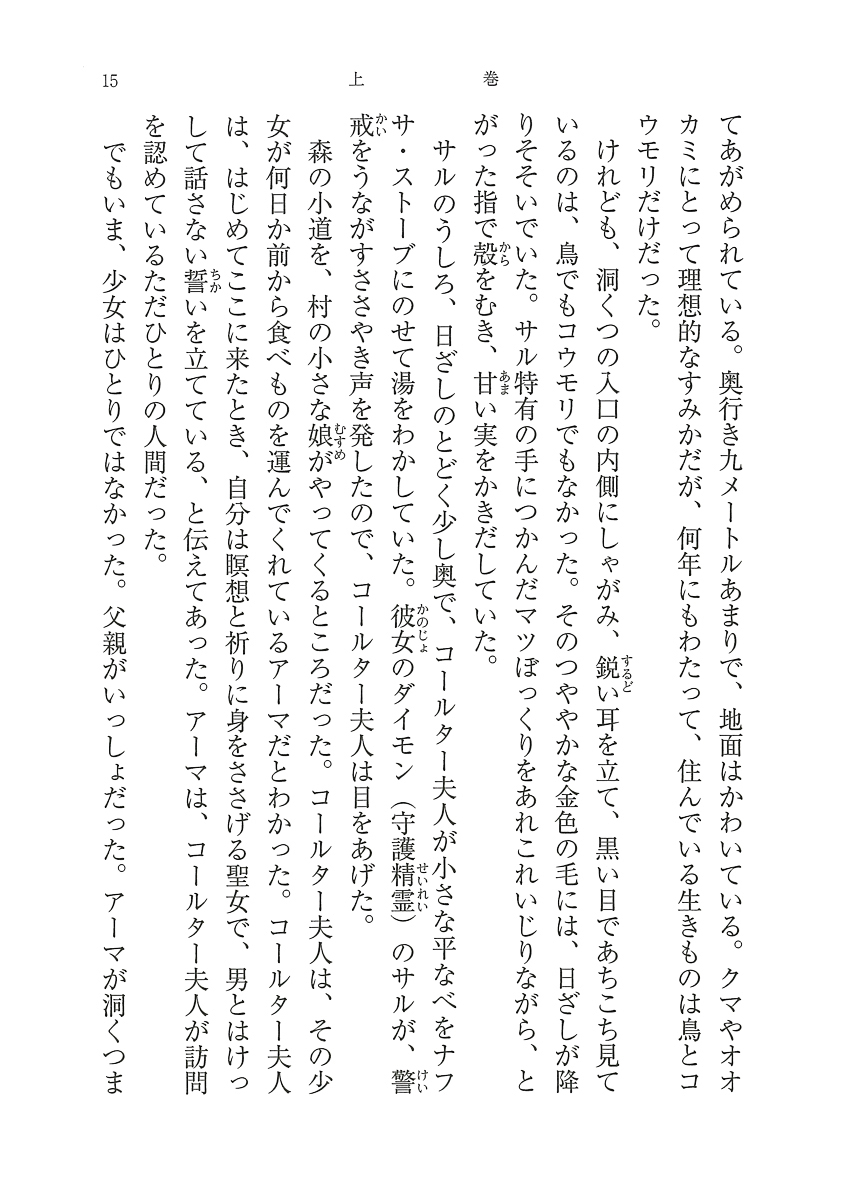 15　上　巻
てあがめられている。奥行き九メートルあまりで、地面はかわいている。クマやオオ
カミにとって理想的なすみかだが、何年にもわたって、住んでいる生きものは鳥とコ
ウモリだけだった。
　けれども、洞くつの入口の内側にしゃがみ、鋭い耳を立て、黒い目であちこち見て
いるのは、鳥でもコウモリでもなかった。そのつややかな金色の毛には、日ざしが降
りそそいでいた。サル特有の手につかんだマツぼっくりをあれこれいじりながら、と
がった指で殻をむき、甘い実をかきだしていた。
　サルのうしろ、日ざしのとどく少し奥で、コールター夫人が小さな平なべをナフ
サ・ストーブにのせて湯をわかしていた。彼女のダイモン（守護精霊）のサルが、警
戒をうながすささやき声を発したので、コールター夫人は目をあげた。
　森の小道を、村の小さな娘がやってくるところだった。コールター夫人は、その少
女が何日か前から食べものを運んでくれているアーマだとわかった。コールター夫人
は、はじめてここに来たとき、自分は瞑想と祈りに身をささげる聖女で、男とはけっ
して話さない誓いを立てている、と伝えてあった。アーマは、コールター夫人が訪問
を認めているただひとりの人間だった。
　でもいま、少女はひとりではなかった。父親がいっしょだった。アーマが洞くつま